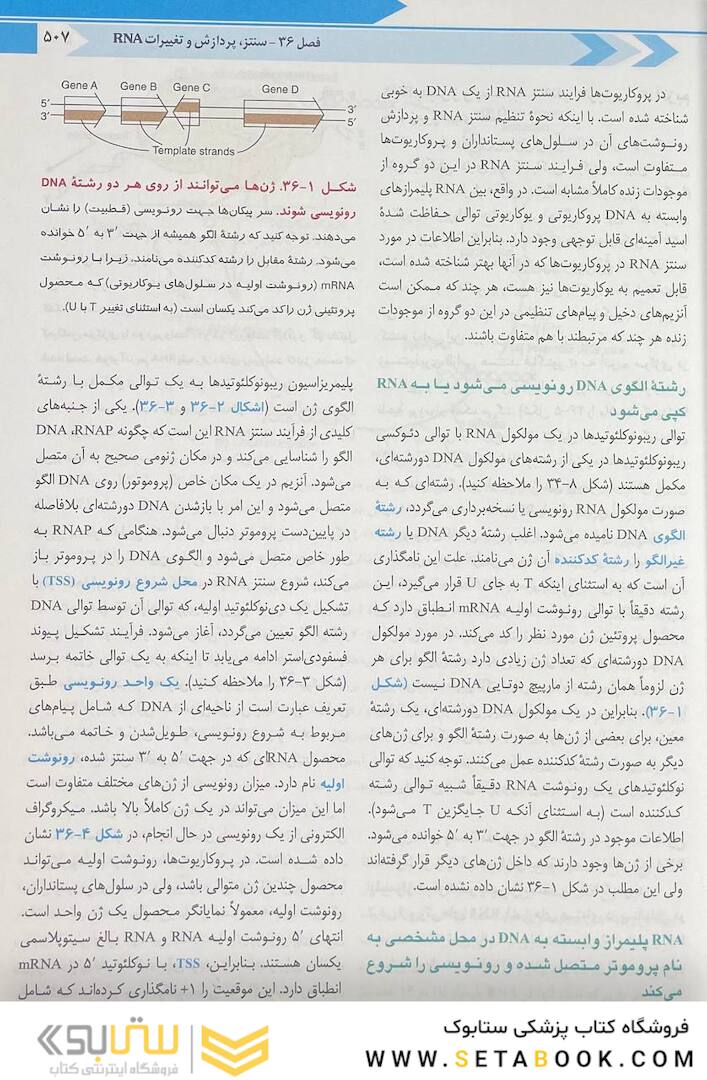 فصل ۳۶ - سنتز، پردازش و تغییرات RNA
۵۰۷
در پروکاریوت‌ها فرایند سنتز RNA از یک DNA به خوبی
شناخته شده است. با اینکه نحوهٔ تنظیم سنتز RNA و پردازش
رونوشت‌های آن در سلول‌های پستانداران و پروکاریوت‌ها
متفاوت است، ولی فرایند سنتز RNA در این دو گروه از
موجودات زنده کاملاً مشابه است. در واقع، بین RNA پلیمرازهای
وابسته به DNA پروکاریوتی و یوکاریوتی توالی حفاظت شدهٔ
اسید آمینه‌ای قابل توجهی وجود دارد. بنابراین اطلاعات در مورد
سنتز RNA در پروکاریوت‌ها که در آنها بهتر شناخته شده است،
قابل تعمیم به یوکاریوت‌ها نیز هست، هر چند که ممکن است
آنزیم‌های دخیل و پیام‌های تنظیمی در این دو گروه از موجودات
زنده هر چند که مرتبطند با هم متفاوت باشند.
رشتهٔ الگوی DNA رونویسی می‌شود یا به RNA
کپی می‌شود
توالی ریبونوکلئوتیدها در یک مولکول RNA با توالی دئوکسی
ریبونوکلئوتیدها در یکی از رشته‌های مولکول DNA دورشته‌ای،
مکمل هستند (شکل ۸-۳۴ را ملاحظه کنید). رشته‌ای که به
صورت مولکول RNA رونویسی یا نسخه‌برداری می‌گردد، رشتهٔ
الگوی DNA نامیده می‌شود. اغلب رشتهٔ دیگر DNA یا رشته
غیرالگو را رشتهٔ کدکننده آن ژن می‌نامند. علت این نامگذاری
آن است که به استثنای اینکه T به جای U قرار می‌گیرد، این
رشته دقیقاً با توالی رونوشت اولیه mRNA انطباق دارد که
محصول پروتئین ژن مورد نظر را کد می‌کند. در مورد مولکول
DNA دورشته‌ای که تعداد ژن زیادی دارد رشتهٔ الگو برای هر
ژن لزوماً همان رشته از مارپیچ دوتایی DNA نیست (شکل
۱-۳۶). بنابراین در یک مولکول DNA دورشته‌ای، یک رشتهٔ
معین، برای بعضی از ژن‌ها به صورت رشتهٔ الگو و برای ژن‌های
دیگر به صورت رشتهٔ کدکننده عمل می‌کنند. توجه کنید که توالی
نوکلئوتیدهای یک رونوشت RNA دقیقاً شبیه توالی رشته
کدکننده است (به استثنای آنکه U جایگزین T می‌شود).
اطلاعات موجود در رشتهٔ الگو در جهت ′۳ به ′۵ خوانده می‌شود.
برخی از ژن‌ها وجود دارند که داخل ژن‌های دیگر قرار گرفته‌اند
ولی این مطلب در شکل ۱-۳۶ نشان داده نشده است.
RNA پلیمراز وابسته به DNA در محل مشخصی به
نام پروموتر متصل شده و رونویسی را شروع
می‌کند
Gene A Gene B Gene C Gene D
5′ 3′
3′ 5′
Template strands
شکل ۱-۳۶. ژن‌ها می‌توانند از روی هر دو رشتهٔ DNA
رونویسی شوند. سر پیکان‌ها جهت رونویسی (قطبیت) را نشان
می‌دهند. توجه کنید که رشتهٔ الگو همیشه از جهت ′۳ به ′۵ خوانده
می‌شود. رشتهٔ مقابل را رشته کدکننده می‌نامند، زیرا با رونوشت
mRNA (رونوشت اولیه در سلول‌های یوکاریوتی) که محصول
پروتئینی ژن را کد می‌کند یکسان است (به استثنای تغییر T با U).
پلیمریزاسیون ریبونوکلئوتیدها به یک توالی مکمل با رشتهٔ
الگوی ژن است (اشکال ۲-۳۶ و ۳-۳۶). یکی از جنبه‌های
کلیدی از فرآیند سنتز RNA این است که چگونه RNAP، DNA
الگو را شناسایی می‌کند و در مکان ژنومی صحیح به آن متصل
می‌شود. آنزیم در یک مکان خاص (پروموتور) روی DNA الگو
متصل می‌شود و این امر با بازشدن DNA دورشته‌ای بلافاصله
در پایین‌دست پروموتر دنبال می‌شود. هنگامی که RNAP به
طور خاص متصل می‌شود و الگوی DNA را در پروموتر باز
می‌کند، شروع سنتز RNA در محل شروع رونویسی (TSS) با
تشکیل یک دی‌نوکلئوتید اولیه، که توالی آن توسط توالی DNA
رشته الگو تعیین می‌گردد، آغاز می‌شود. فرآیند تشکیل پیوند
فسفودی‌استر ادامه می‌یابد تا اینکه به یک توالی خاتمه برسد
(شکل ۳-۳۶ را ملاحظه کنید). یک واحد رونویسی طبق
تعریف عبارت است از ناحیه‌ای از DNA که شامل پیام‌های
مربوط به شروع رونویسی، طویل‌شدن و خاتمه می‌باشد.
محصول RNAای که در جهت ′۵ به ′۳ سنتز شده، رونوشت
اولیه نام دارد. میزان رونویسی از ژن‌های مختلف متفاوت است
اما این میزان می‌تواند در یک ژن کاملاً بالا باشد. میکروگراف
الکترونی از یک رونویسی در حال انجام، در شکل ۴-۳۶ نشان
داده شده است. در پروکاریوت‌ها، رونوشت اولیه می‌تواند
محصول چندین ژن متوالی باشد، ولی در سلول‌های پستانداران،
رونوشت اولیه، معمولاً نمایانگر محصول یک ژن واحد است.
انتهای ′۵ رونوشت اولیه RNA و RNA بالغ سیتوپلاسمی
یکسان هستند. بنابراین، TSS، با نوکلئوتید ′۵ در mRNA
انطباق دارد. این موقعیت را ۱+ نامگذاری کرده‌اند که شامل
فروشگاه کتاب پزشکی ستابوک
WWW.SETABOOK.COM
ستابوک
فروشگاه اینترنتی کتاب